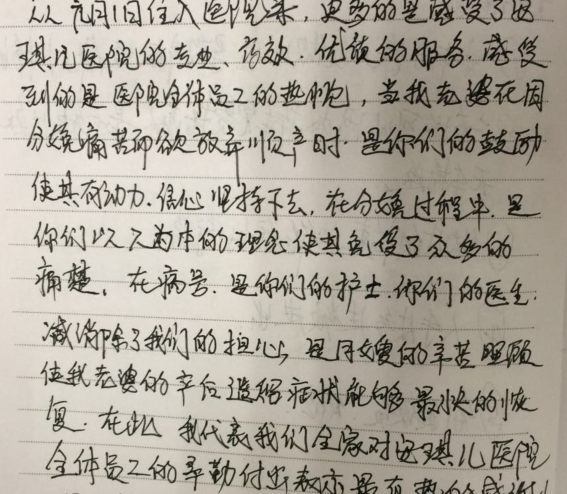 从元月1日住入医院来，更多的是感受了安
琪儿医院的专业、高效、优质的服务。感受
到的是医院全体员工的热忱，当我老婆在因
分娩痛苦而欲放弃顺产时，是你们的鼓励
使其有动力、信心坚持下去，在分娩过程中，是
你们以人为本的理念使其免受了众多的
痛楚。在病房，是你们的护士、你们的医生，
消除了我们的担心，是月嫂的辛苦照顾
使我老婆的产后遗留症状能够最快的恢
复。在此 我代表我们全家对安琪儿医院
全体员工的辛勤付出表示最真挚的感谢！